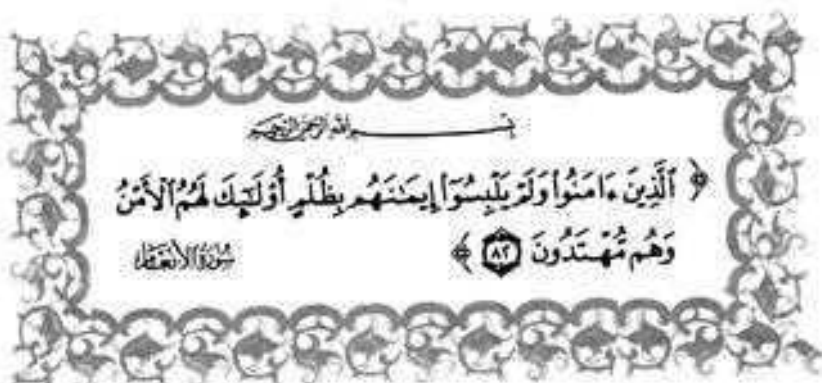 بسم الله الرحمن الرحيم
﴿ ٱلَّذِينَ ءَامَنُوا۟ وَلَمْ يَلْبِسُوٓا۟ إِيمَـٰنَهُم بِظُلْمٍ أُو۟لَـٰٓئِكَ لَهُمُ ٱلْأَمْنُ
وَهُم مُّهْتَدُونَ ٨٢ ﴾ سورة الأنعام